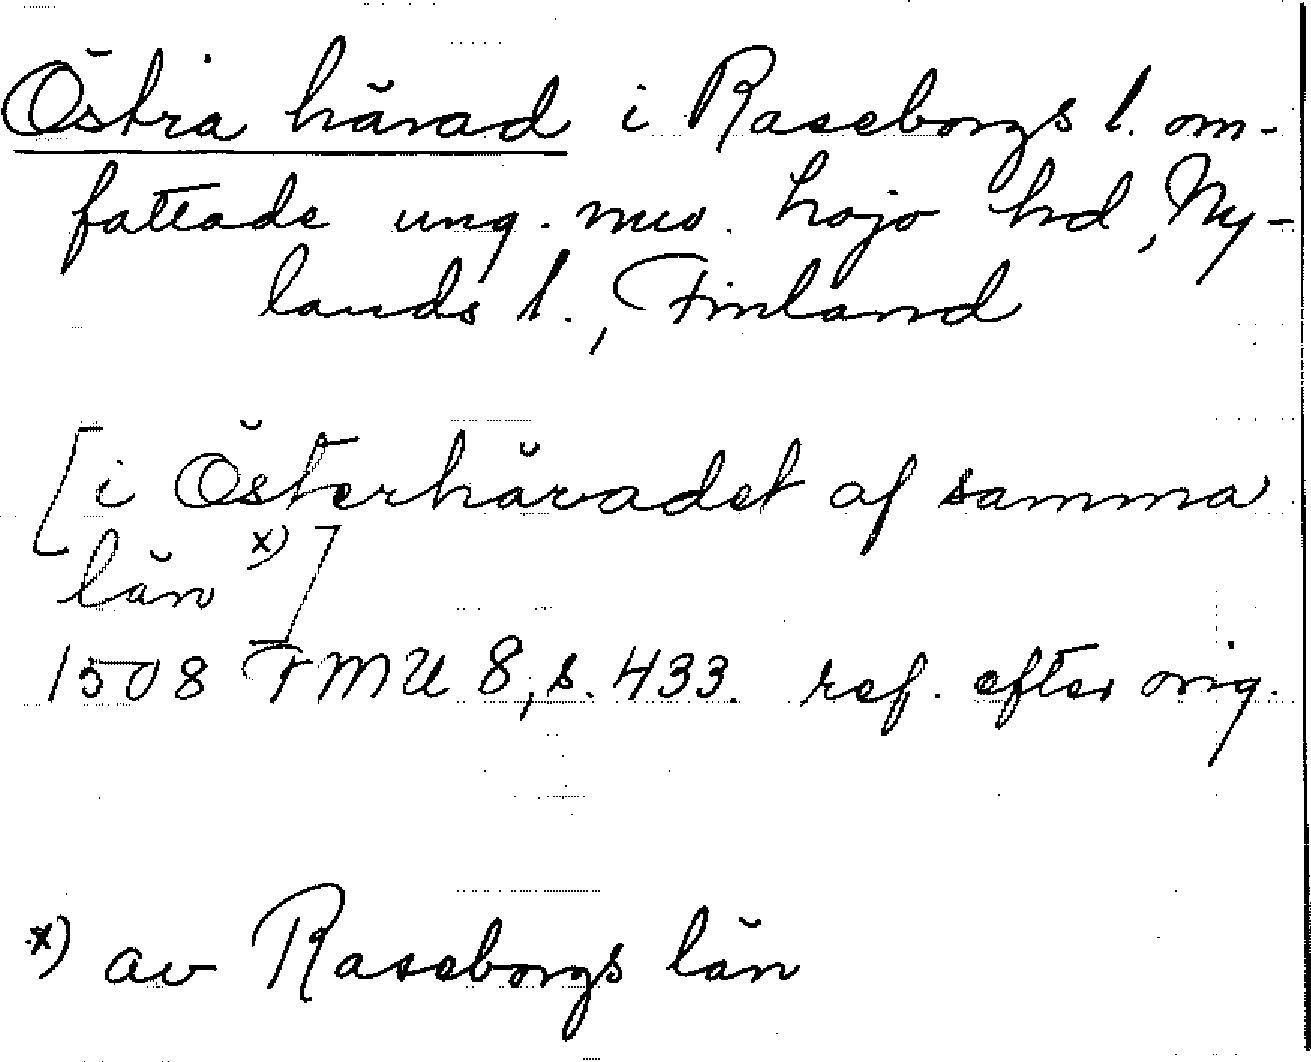 Östra härad i Raseborgs l. om-
fattade ung. muv. Lojo hd, Ny-
lands l., Finland
[i Österhäradet af samma
län x)]
1508 FMU 8, s. 433. ref. efter orig.
x) av Raseborgs län